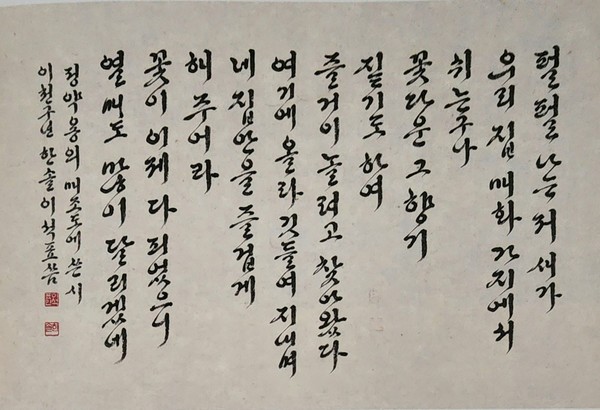 펄펄 나는 저 새가
우리 집 매화 가지에서
쉬는구나
꽃다운 그 향기
짙기도 하여
즐거이 놀려고 찾아왔다
여기에 올라 깃들여 지내며
네 집안을 즐겁게
해 주어라
꽃이 이제 다 피었으니
열매도 많이 달리겠네
정약용의 매조도에 쓴 시
이천구년 한솔 이석표 씀